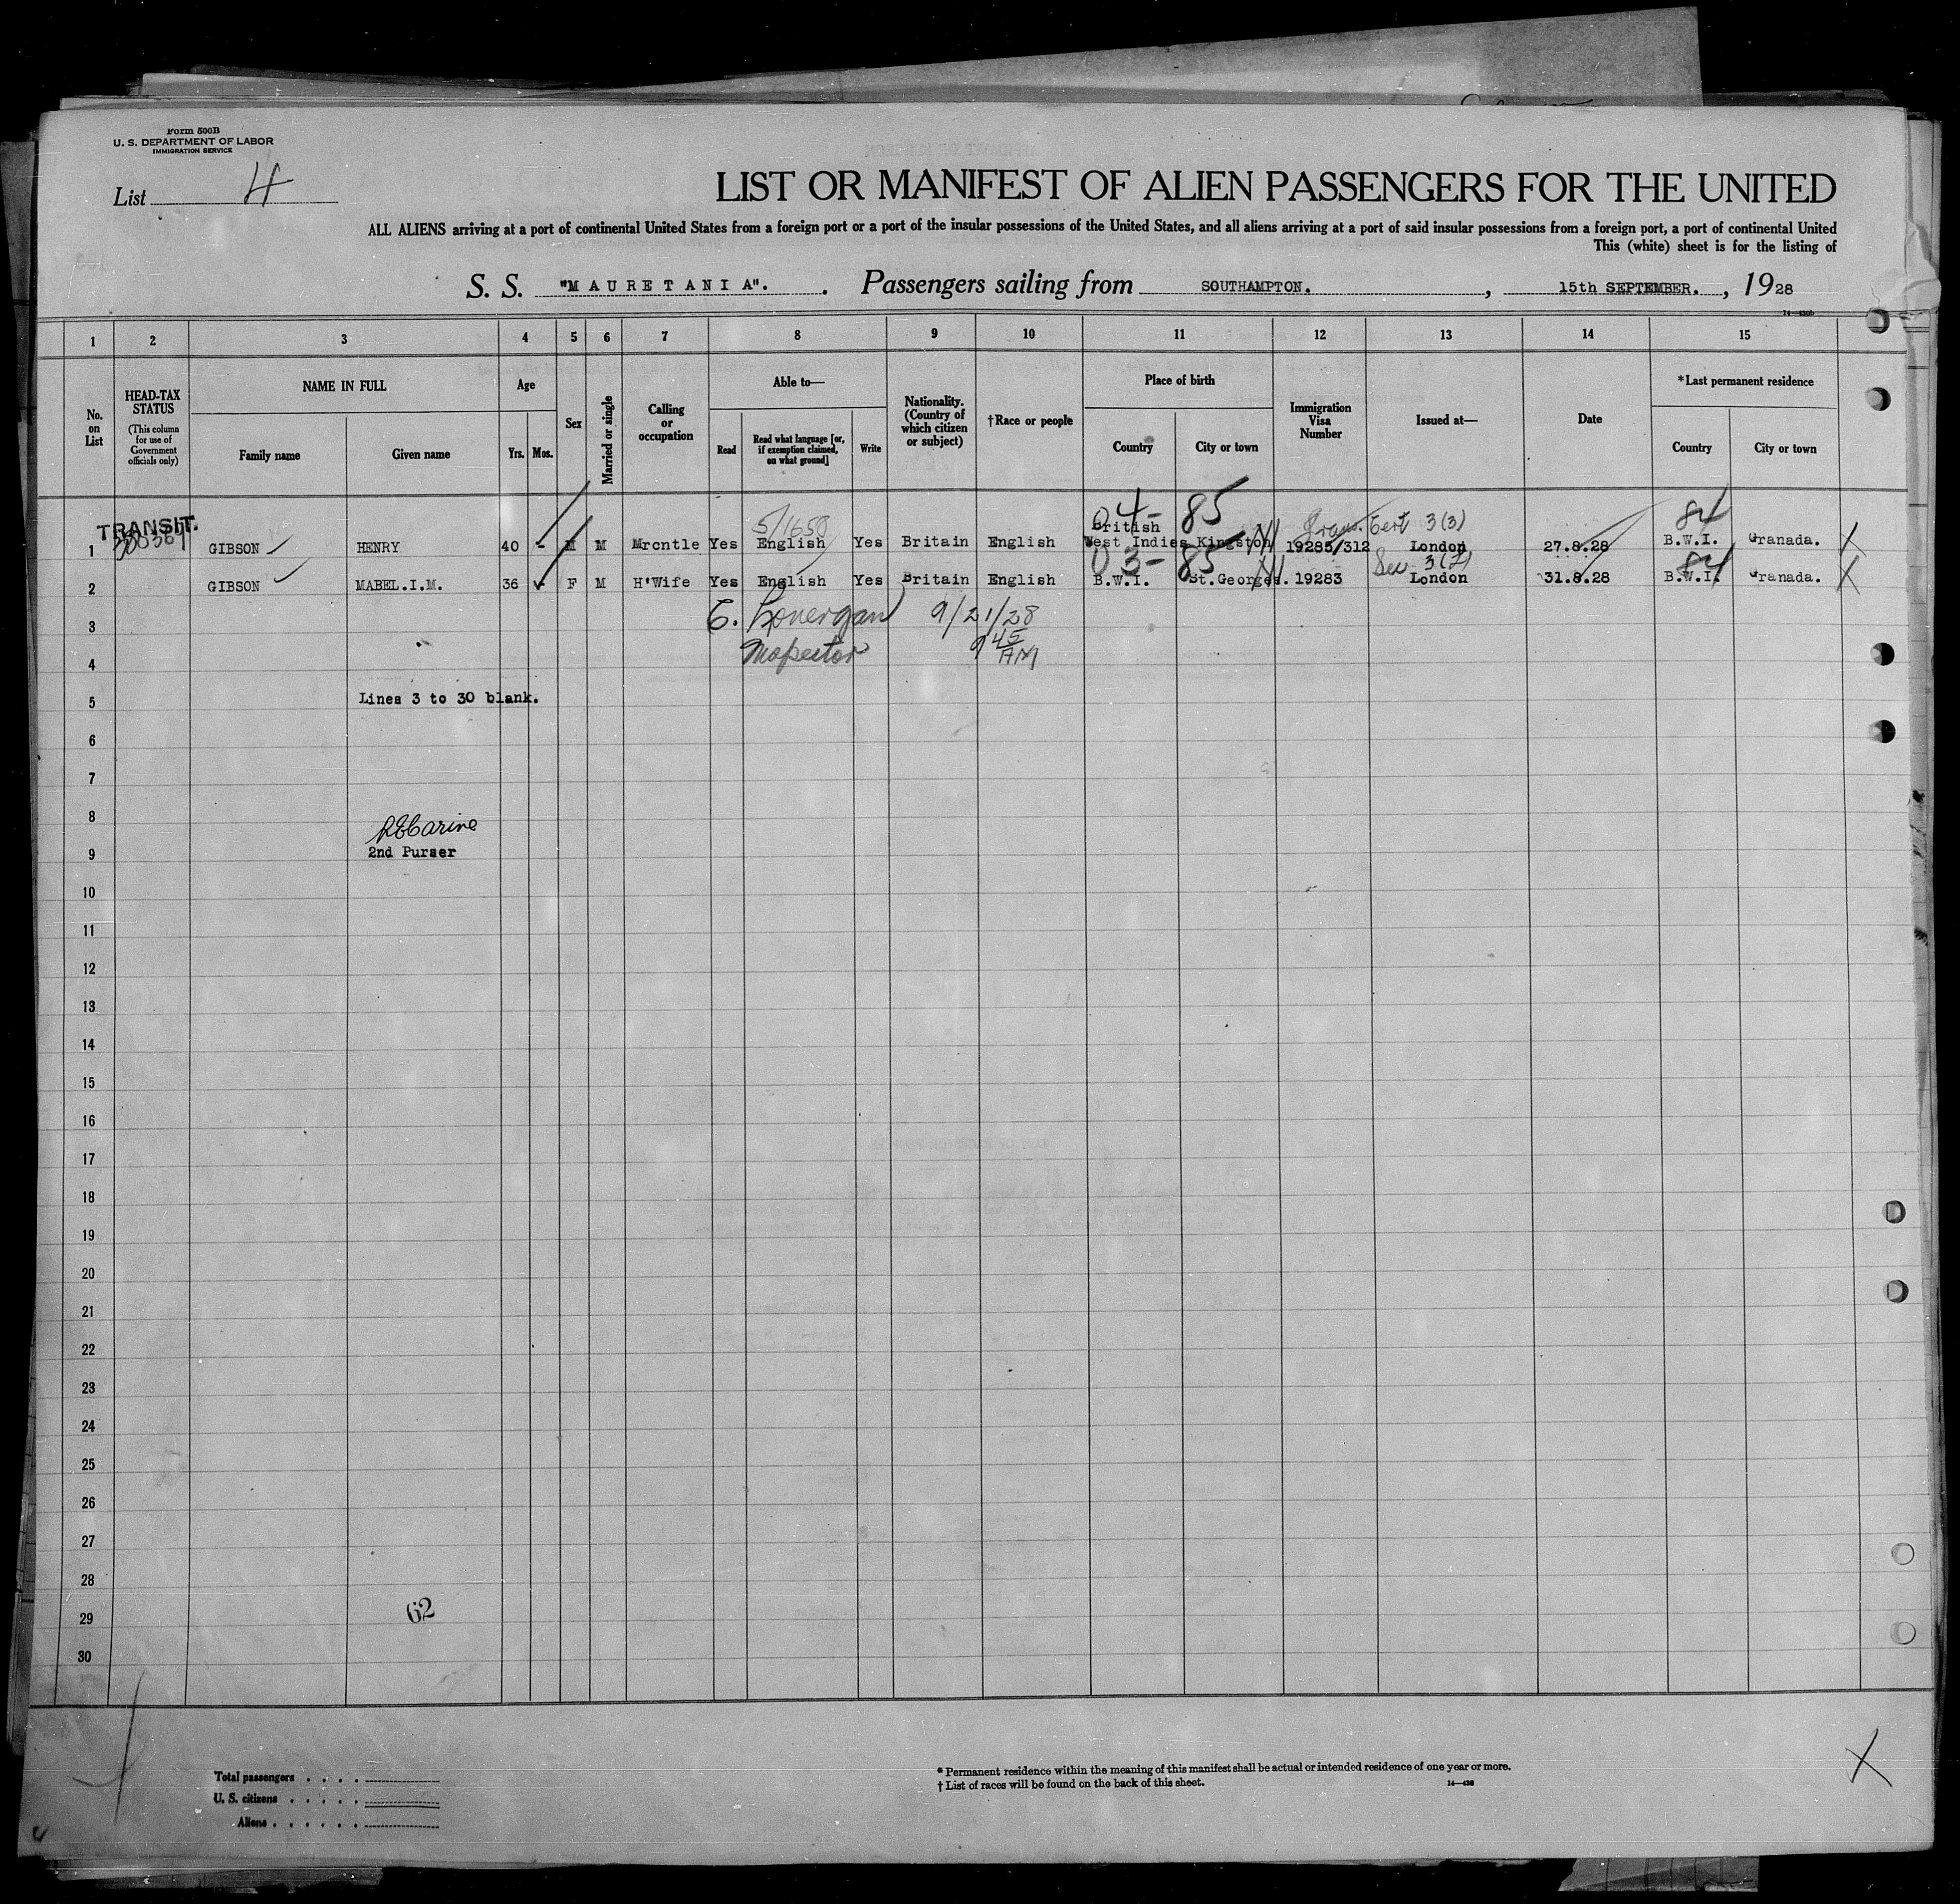 Form 500B
U. S. DEPARTMENT OF LABOR
IMMIGRATION SERVICE
List 4
LIST OR MANIFEST OF ALIEN PASSENGERS FOR THE UNITED
ALL ALIENS arriving at a port of continental United States from a foreign port or a port of the insular possessions of the United States, and all aliens arriving at a port of said insular possessions from a foreign port, a port of continental United
This (white) sheet is for the listing of
S. S. "MAURETANIA". Passengers sailing from SOUTHAMPTON., 15th SEPTEMBER., 1928
14—430b
1 2 3 4 5 6 7 8 9 10 11 12 13 14 15
No. on List
HEAD-TAX STATUS (This column for use of Government officials only)
NAME IN FULL
Family name
Given name
Age
Yrs. Mos.
Sex
Married or single
Calling or occupation
Able to—
Read
Read what language [or, if exemption claimed, on what ground]
Write
Nationality. (Country of which citizen or subject)
†Race or people
Place of birth
Country
City or town
Immigration Visa Number
Issued at—
Date
*Last permanent residence
Country
City or town
04- 85 84
TRANSIT. 5/1658 British Cert 3(3)
1 GIBSON HENRY 40 - M M Mrcntle Yes English Yes Britain English West Indies Kingston 19285/312 London 27.8.28 B.W.I. Granada. X
03- 85 84
2 GIBSON MABEL.I.M. 36 - F M H'Wife Yes English Yes Britain English B.W.I. St.Georges. 19283 London 31.8.28 B.W.I. Granada. X
3 Lonergan 9/21/28
4 Inspector 9 45 AM
5 Lines 3 to 30 blank.
6
7
8
9 2nd Purser
10
11
12
13
14
15
16
17
18
19
20
21
22
23
24
25
26
27
28
29 62
30
Total passengers . . . .
U. S. citizens . . . . .
Aliens . . . . . .
* Permanent residence within the meaning of this manifest shall be actual or intended residence of one year or more.
† List of races will be found on the back of this sheet.
14—430
X